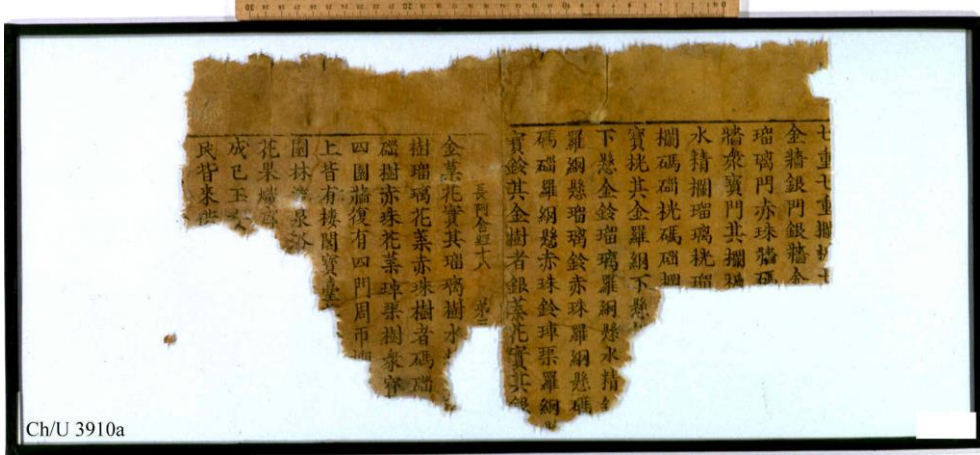 七重七重攔楯七
金牆銀門銀牆金
瑠璃門赤珠牆碼
牆衆寶門其攔楯
水精攔瑠璃桄瑠
攔碼碯桄碼碯攔
寶桄其金羅網下懸
下懸金鈴瑠璃羅網懸水精
羅網懸瑠璃鈴赤珠羅網懸碼
碼碯羅網懸赤珠鈴硨磲羅網
寶鈴其金樹者銀葉花實其銀
長阿含經十八 第二
金葉花實其瑠璃樹水
樹瑠璃花葉赤珠樹者碼碯
碯樹赤珠花葉硨磲樹衆寶
四園牆復有四門周帀
上皆有樓閣寶臺
園林清泉浴
花果熾盛
成已玉女
民皆來供
Ch/U 3910a